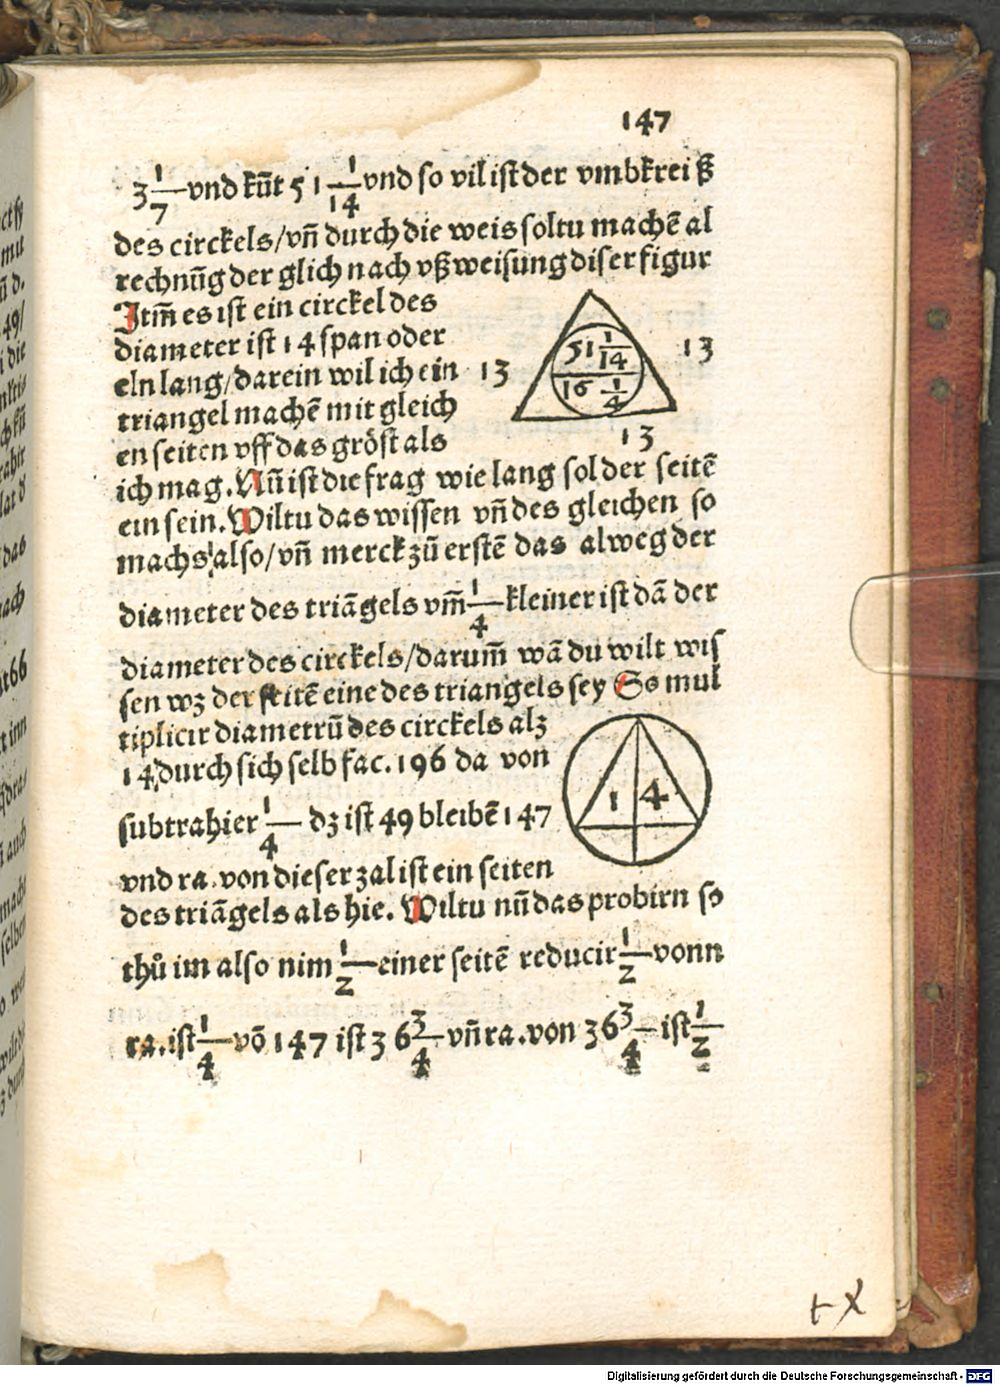 147
3 1/7 vnd kūt 51 1/14 vnd so vil ist der vmbkreiß
des circkels/vn̄ durch die weis soltu machē al
rechnūg der glich nach vßweisung diser figur
Itm̄ es ist ein circkel des
diameter ist 14 span oder
eln lang/darein wil ich ein
triangel machē mit gleich
en seiten vff das gröst als
13
51 1/14
16 1/4
13
13
ich mag. Nū ist die frag wie lang sol der seitē
ein sein. Wiltu das wissen vn̄ des gleichen so
machs also/vn̄ merck zū erstē das alweg der
diameter des triāgels vm̄ 1/4 kleiner ist dā der
diameter des circkels/darum̄ wā du wilt wis
sen wz der seitē eine des triangels sey So mul
tiplicir diametrū des circkels alz
14 durch sich selb fac. 196 da von
subtrahier 1/4 dz ist 49 bleibē 147
vnd ra. von dieser zal ist ein seiten
14
des triāgels als hie. Wiltu nū das probirn so
thů im also nim 1/2 einer seitē reducir 1/2 vonn
ra. ist 1/4 vō 147 ist 36 3/4 vn̄ ra. von 36 3/4 ist 1/2
Digitalisierung gefördert durch die Deutsche Forschungsgemeinschaft - DFG